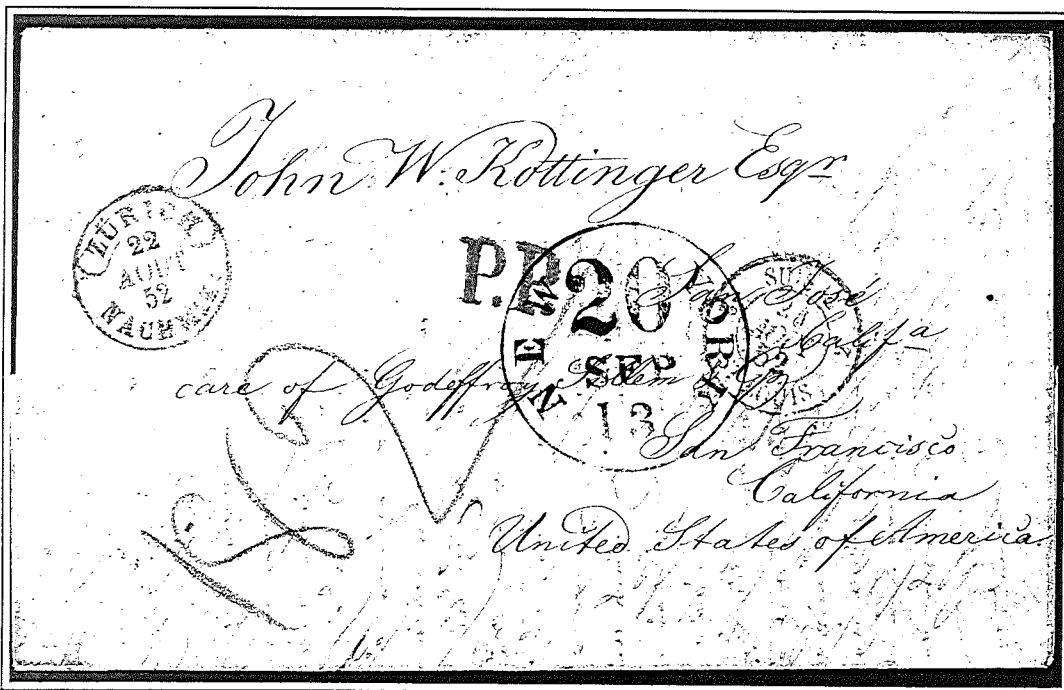 John W. Kottinger Esqr
ZÜRICH
22
AOUT
52
NACHM.
P.P.
NEW YORK
20
SEP
13
San José
Califa
care of Godeffroy,
San Francisco
California
United States of America